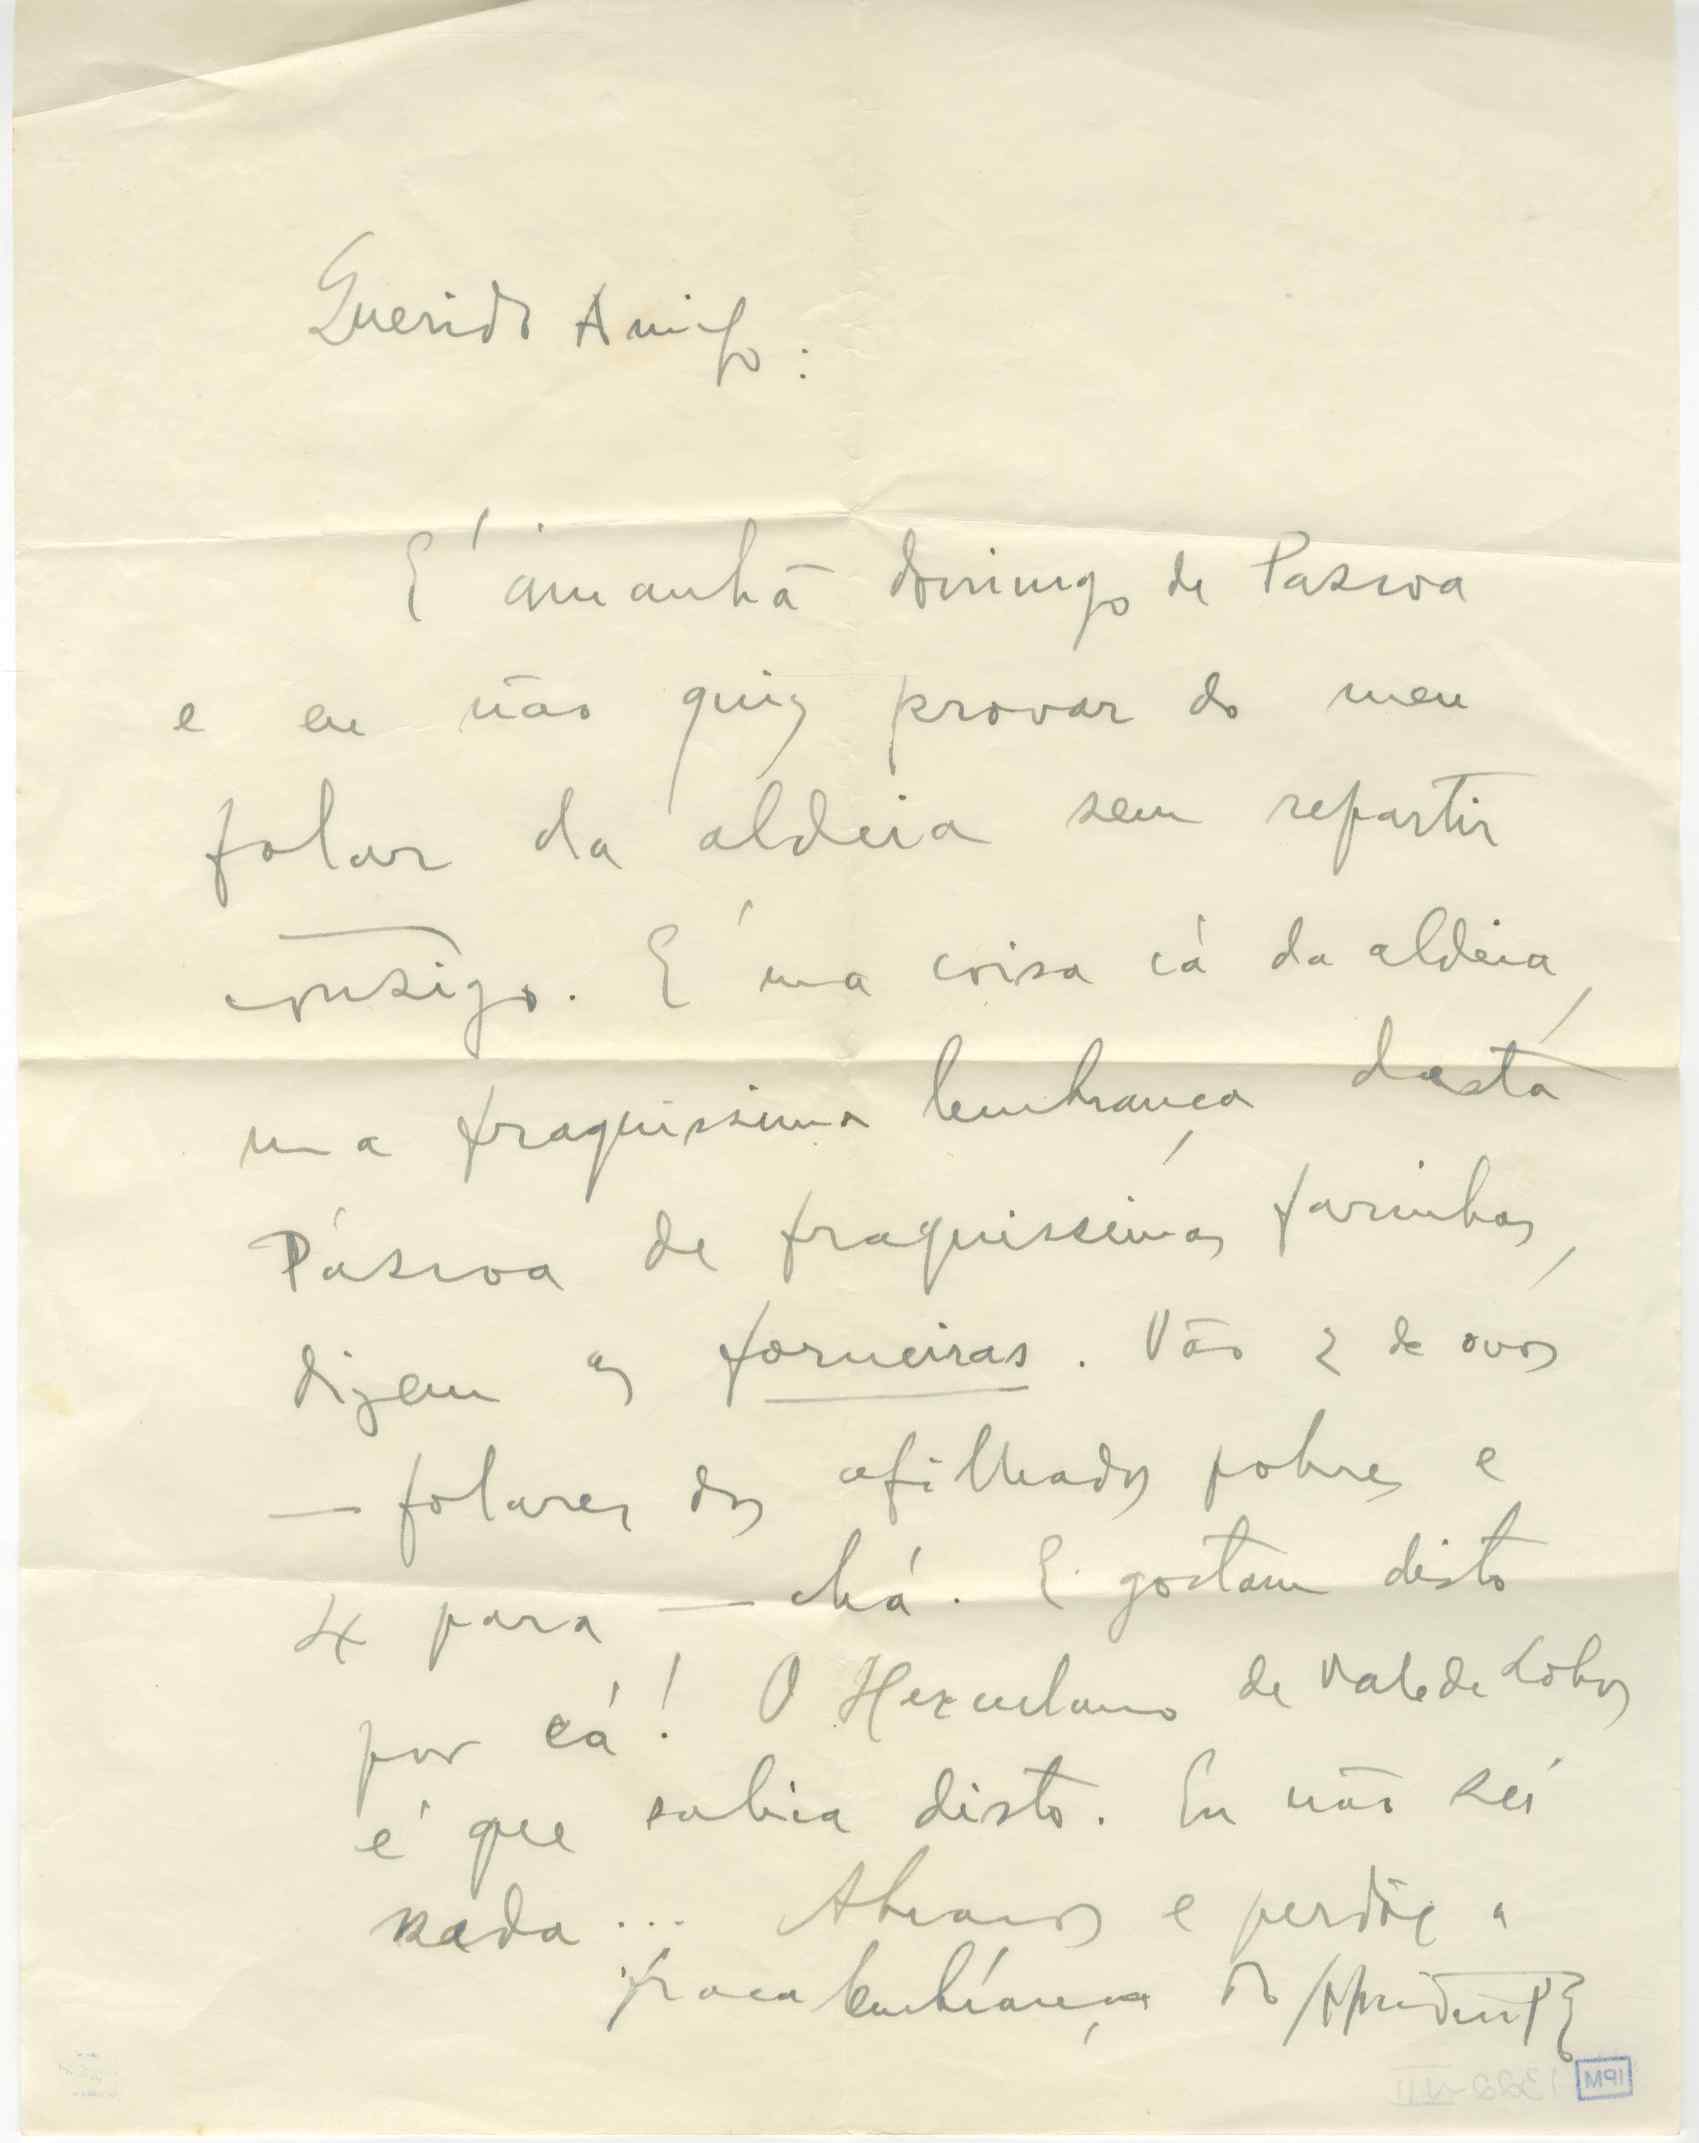 Querido Amigo:
E' ámanhã domingo de Pascoa
e eu não quiz provar do meu
folar da aldeia sem repartir
consigo. E' uma coisa cá da aldeia,
uma fraquissima lembrança desta
Páscoa de fraquissimas farinhas,
dizem as forneiras. Vão 2 de ovos
— folares dos afilhados pobres e
4 para — chá. E gostam disto
por cá! O Herculano de Vale de Lobos
é que sabia disto. Eu não sei
nada... Abraços e perdôe a
fraca lembrança do
IPM